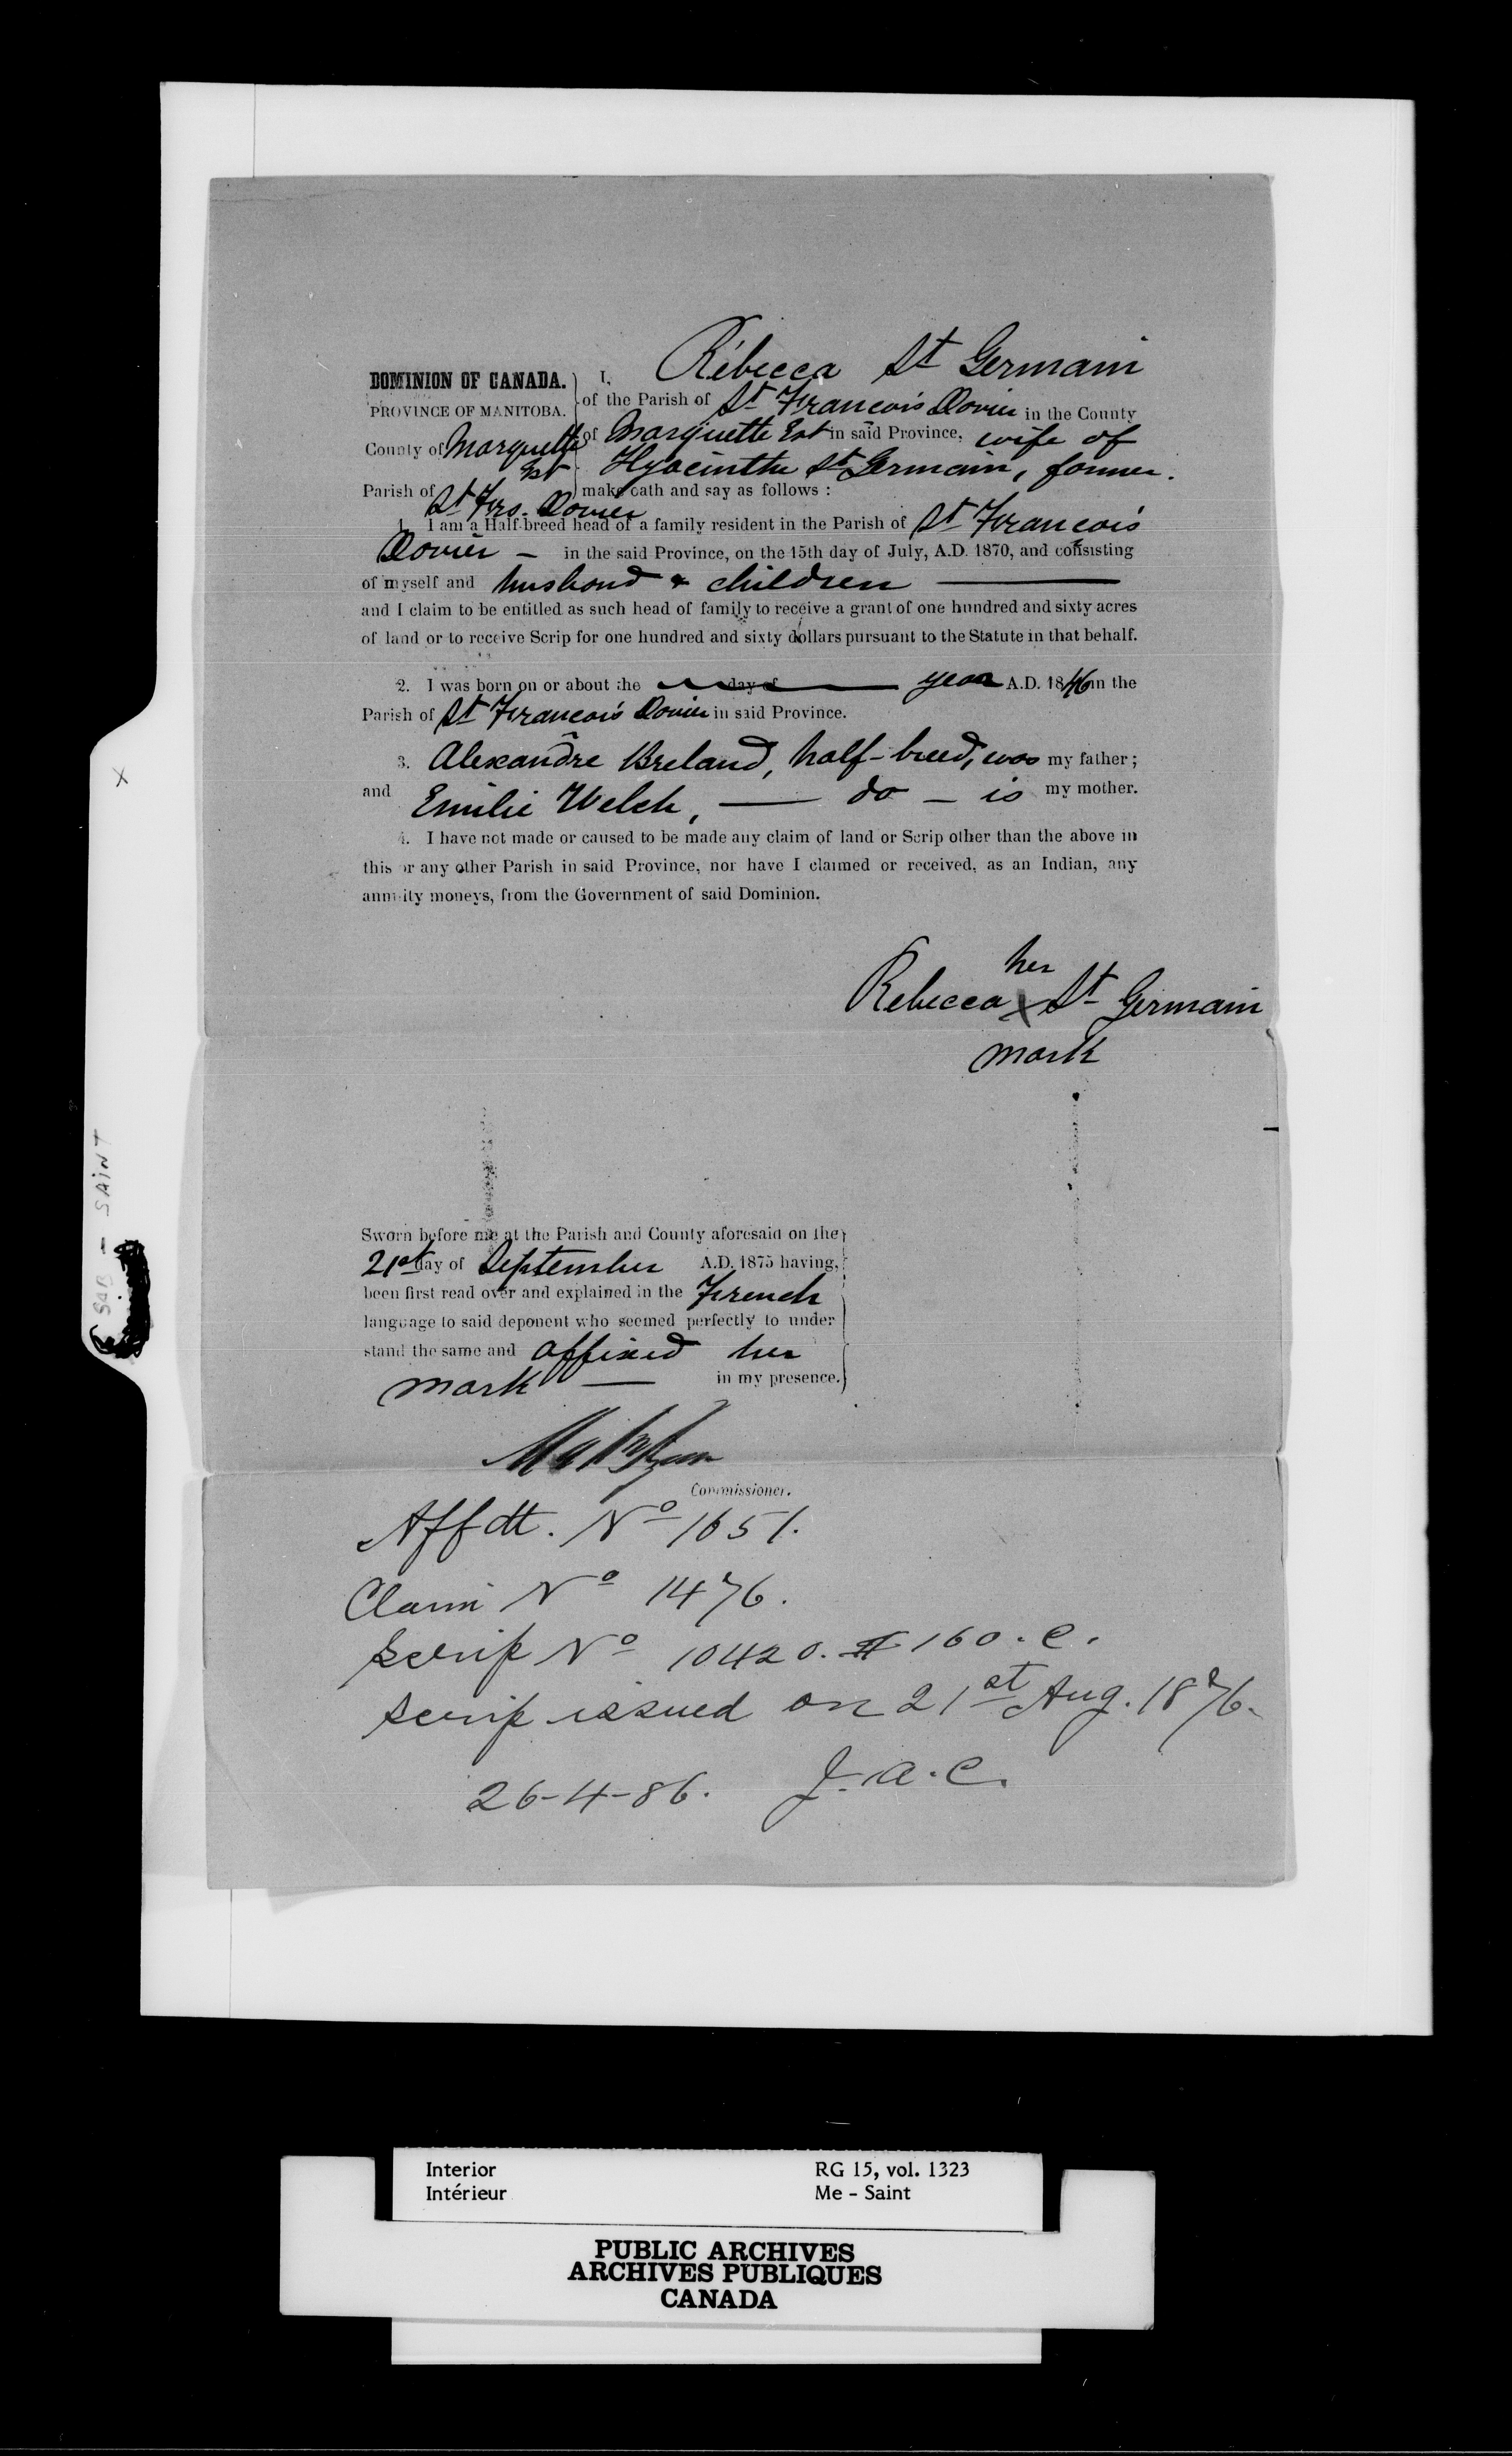 Rébecca St Germain
DOMINION OF CANADA. I,
of the Parish of St François Xavier in the County
PROVINCE OF MANITOBA.
County of Marquette Est
of Marquette Est in said Province, wife of
Hyacinthe St Germain, farmer.
Parish of St Frs. Xavier
make oath and say as follows :
1. I am a Half-breed head of a family resident in the Parish of St François
Xavier — in the said Province, on the 15th day of July, A.D. 1870, and consisting
of myself and husband & children —
and I claim to be entitled as such head of family to receive a grant of one hundred and sixty acres
of land or to receive Scrip for one hundred and sixty dollars pursuant to the Statute in that behalf.
2. I was born on or about the day of year A.D. 1846 in the
Parish of St François Xavier in said Province.
3. Alexandre Breland, half-breed, was my father;
and Emilie Welch, — do — is my mother.
4. I have not made or caused to be made any claim of land or Scrip other than the above in
this or any other Parish in said Province, nor have I claimed or received, as an Indian, any
annuity moneys, from the Government of said Dominion.
her
Rebecca x St Germain
mark
Sworn before me at the Parish and County aforesaid on the
21st day of September A.D. 1875 having,
been first read over and explained in the French
language to said deponent who seemed perfectly to under
stand the same and affixed her
mark — in my presence.
Commissioner.
Affdt. No 1651.
Claim No 1476.
Scrip No 10420. $160. c.
Scrip issued on 21st Aug. 1876.
26-4-86. J.A.C.
X
SAB - SAINT
Interior RG 15, vol. 1323
Intérieur Me - Saint
PUBLIC ARCHIVES
ARCHIVES PUBLIQUES
CANADA